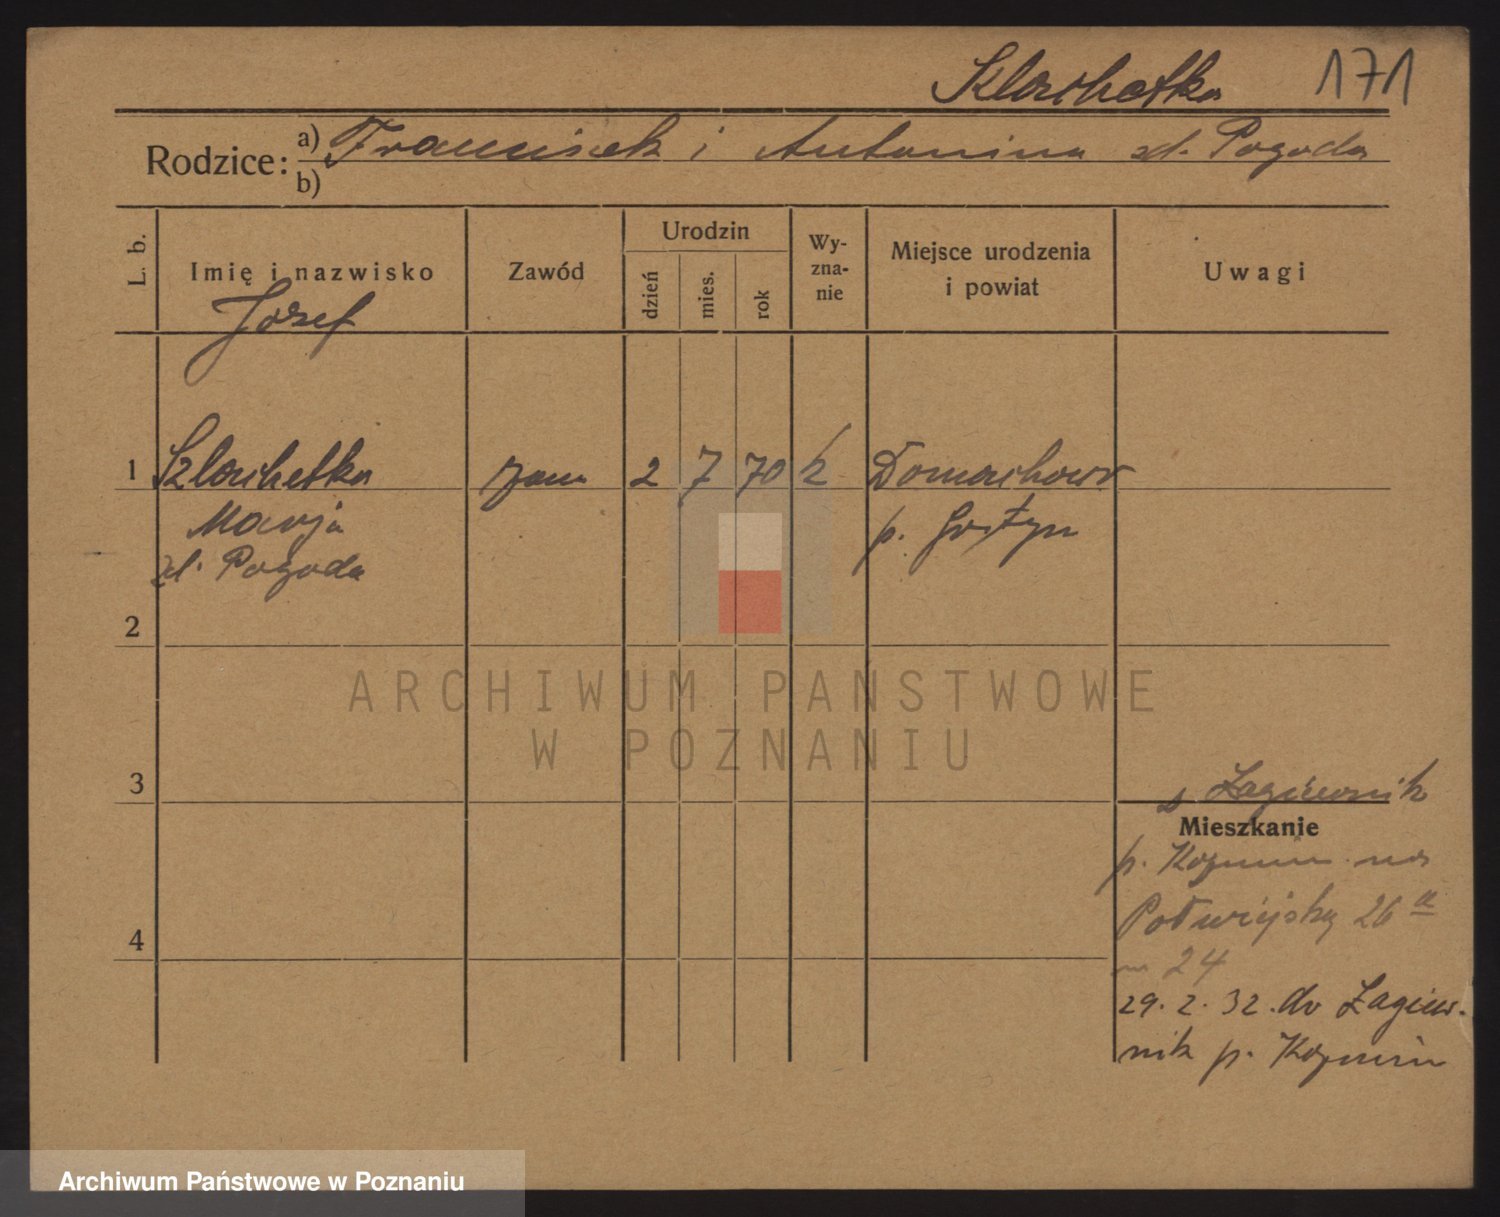 Szlachetka 171
Rodzice: a) Franciszek i Antonina zd. Pogoda
b)
L. b.
Imię i nazwisko
Zawód
Urodzin
dzień
mies.
rok
Wy-
zna-
nie
Miejsce urodzenia
i powiat
Uwagi
Józef
1 Szlachetka 2 7 70 k Domachowo
Marja p. Gostyn
zd. Pogoda
2
3
z Łagiewnik
Mieszkanie
p. Kozmin na
Półwiejską 26 a
4
m 24
29. 2. 32. do Łagiew-
nik p. Kozmin
ARCHIWUM PAŃSTWOWE
W POZNANIU
Archiwum Państwowe w Poznaniu